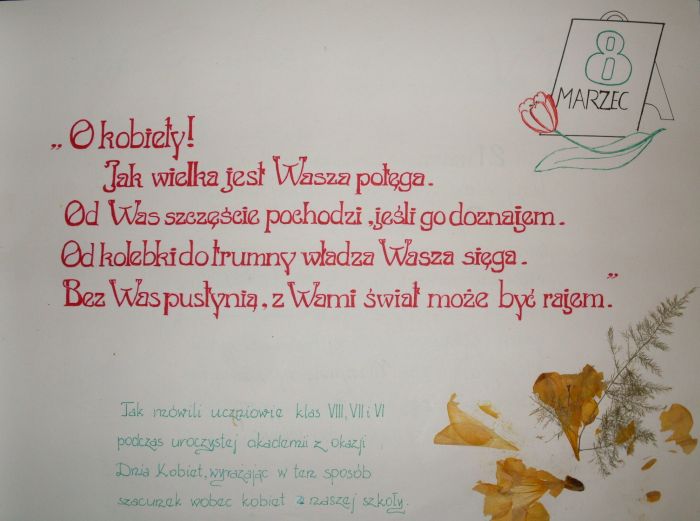 8
MARZEC
„O kobiety!
Jak wielka jest Wasza potęga.
Od Was szczęście pochodzi, jeśli go doznajem.
Od kolebki do trumny władza Wasza sięga.
Bez Was pustynią, z Wami świat może być rajem.”
Tak mówili uczniowie klas VIII, VII i VI
podczas uroczystej akademii z okazji
Dnia Kobiet, wyrażając w ten sposób
szacunek wobec kobiet z naszej szkoły.